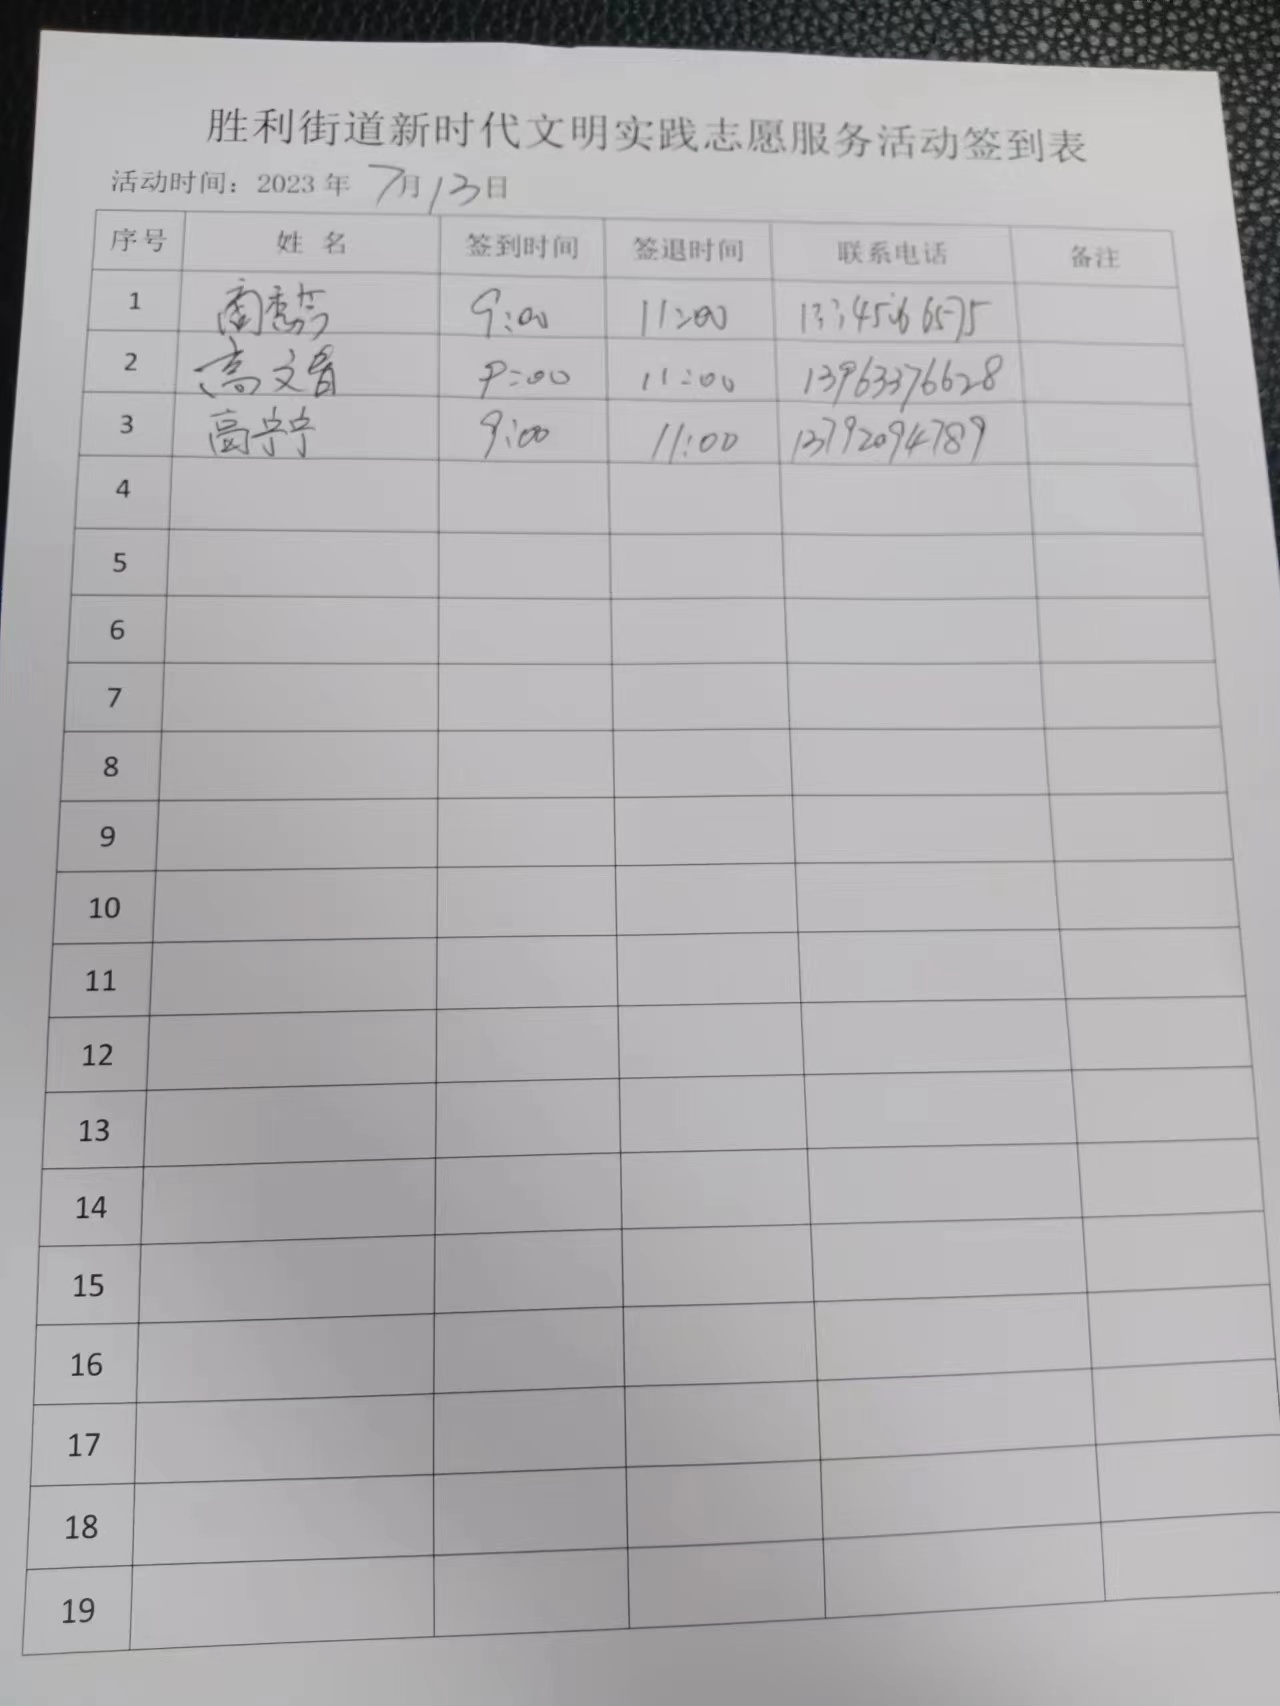 胜利街道新时代文明实践志愿服务活动签到表
活动时间：2023 年 7月13日
序号 姓 名 签到时间 签退时间 联系电话 备注
1 9:00 11:00
2 高文 9:00 11:00 13963376628
3 高宁宁 9:00 11:00 13792094789
4
5
6
7
8
9
10
11
12
13
14
15
16
17
18
19